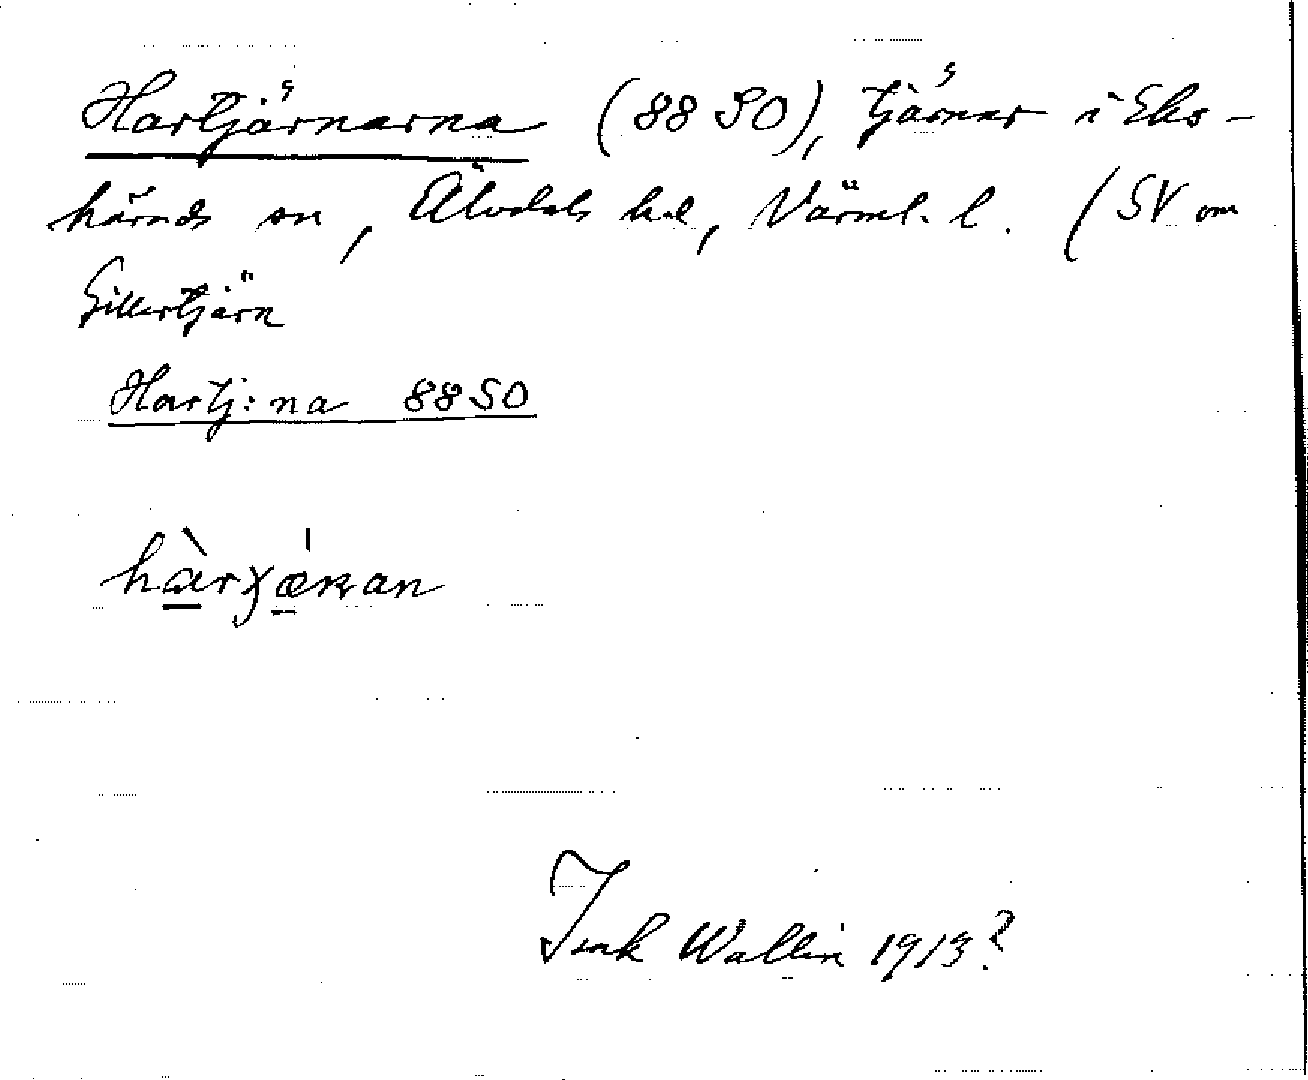 Hartjärnarna (88 SO), tjärnar i Eks-
härads sn, Älvdals hd, Värml. l. (SV om
Gillertjärn
Hartj:na 88 SO
Wallin 1913?